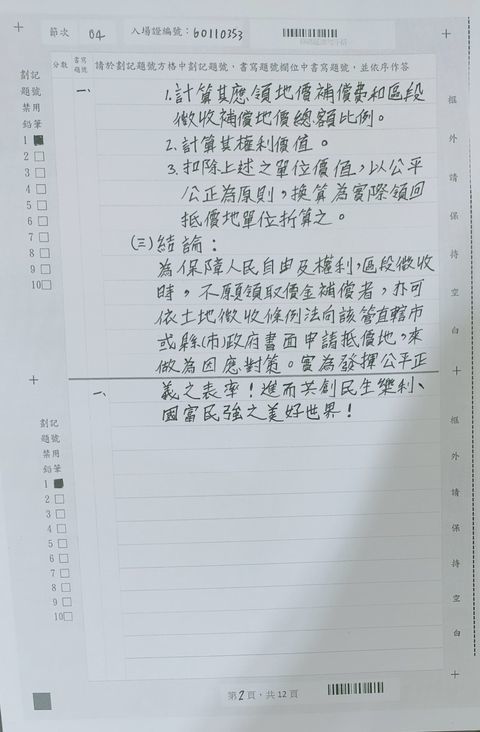 節次 04 入場證編號：60110353
分數 書寫題號 請於劃記題號方格中劃記題號，書寫題號欄位中書寫題號，並依序作答
劃記
題號
禁用
鉛筆
1
2
3
4
5
6
7
8
9
10
一、 1.計算其應領地價補償費和區段
徵收補償地價總額比例。
2.計算其權利價值。
3.扣除上述之單位價值，以公平
公正為原則，換算為實際領回
抵價地單位折算之。
(三)結論：
為保障人民自由及權利，區段徵收
時，不願領取價金補償者，亦可
依土地徵收條例法向該管直轄市
或縣(市)政府書面申請抵價地，來
做為因應對策。實為發揮公平正
一、 義之表率！進而共創民生樂利、
國富民強之美好世界！
劃記
題號
禁用
鉛筆
1
2
3
4
5
6
7
8
9
10
框
外
請
保
持
空
白
框
外
請
保
持
空
白
第2頁，共12頁